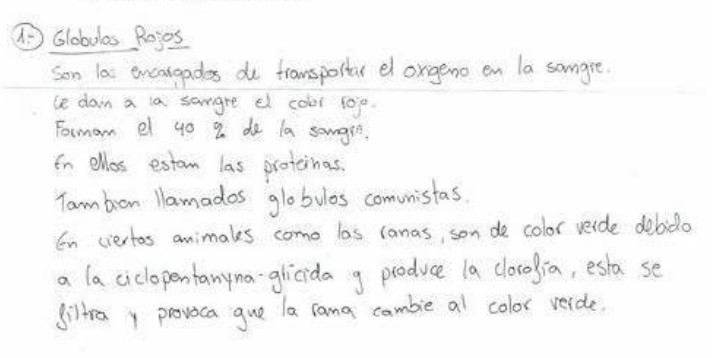 1.- Globulos Rojos
Son los encargados de transportar el oxigeno en la sangre.
Le dan a la sangre el color rojo.
Forman el 40 % de la sangre.
En ellos estan las proteinas.
Tambien llamados globulos comunistas.
En ciertos animales como las ranas, son de color verde debido
a la ciclopentanyna-glicida y produce la clorofia, esta se
filtra y provoca que la rana cambie al color verde.